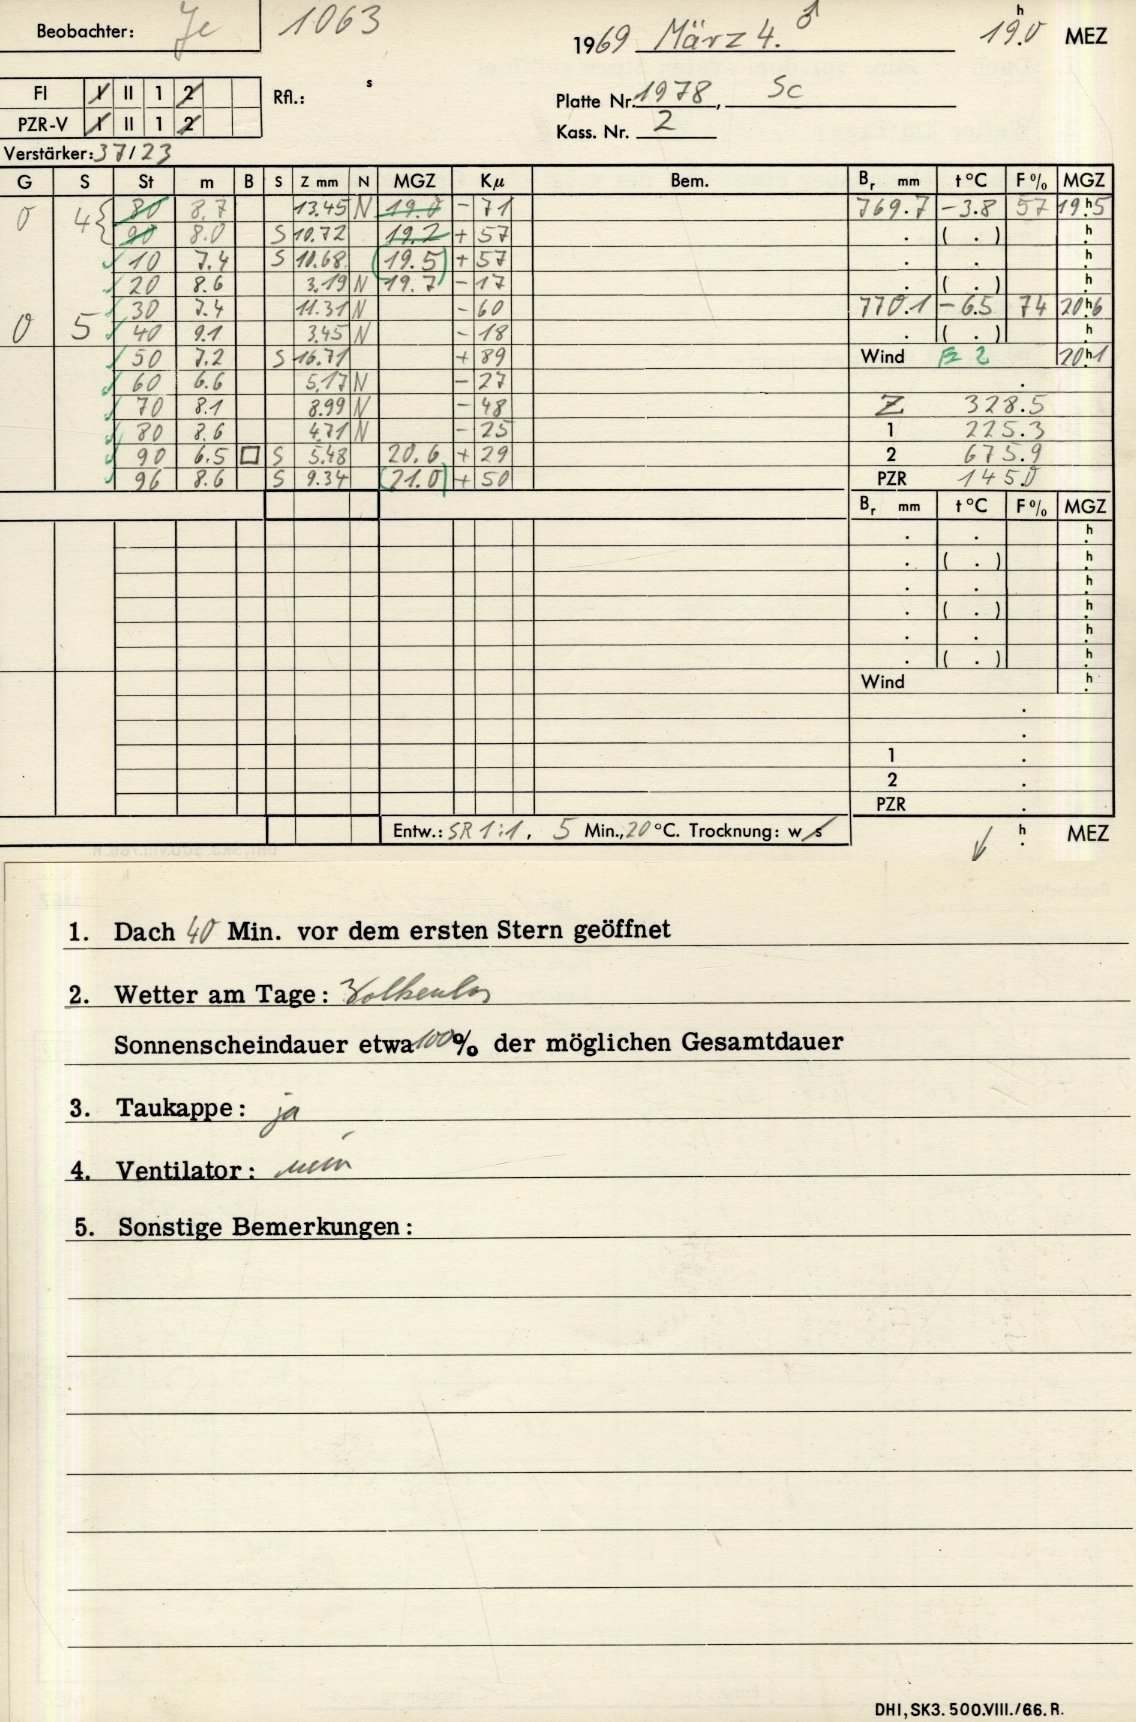 Beobachter: Je 1063
1969 März 4. ♂ 19.0 h MEZ
FI I II 1 2
Rfl.: s
Platte Nr. 1978, Sc
PZR-V I II 1 2
Kass. Nr. 2
Verstärker: 37/23
G S St m B S Z mm N MGZ Kμ Bem. Br mm t °C F % MGZ
0 4 80 8.7 13.45 N 19.0 - 71 769.7 -3.8 57 19h5
90 8.0 S 10.72 19.2 + 57 . ( . ) h
10 7.4 S 10.68 (19.5) + 57 . . h
20 8.6 3.19 N 19.7 - 17 . ( . ) h
30 7.4 11.31 N - 60 770.1 -6.5 74 20h6
0 5 40 9.1 3.45 N - 18 . ( . ) h
50 7.2 S 16.71 + 89 Wind E 2 20h1
60 6.6 5.17 N - 27 .
70 8.1 8.99 N - 48 Z 328.5
80 8.6 4.71 N - 25 1 225.3
90 6.5 □ S 5.48 20.6 + 29 2 675.9
96 8.6 S 9.34 (21.0) + 50 PZR 145.0
Br mm t °C F % MGZ
. . h
. ( . ) h
. . h
. ( . ) h
. . h
. ( . ) h
Wind h
.
.
1 .
2 .
PZR .
Entw.: SR 1:1, 5 Min., 20 °C. Trocknung: w s
h MEZ
1. Dach 40 Min. vor dem ersten Stern geöffnet
2. Wetter am Tage: Wolkenlos
Sonnenscheindauer etwa 100 % der möglichen Gesamtdauer
3. Taukappe: ja
4. Ventilator: nein
5. Sonstige Bemerkungen:
DHI, SK3. 500.VIII./66. R.